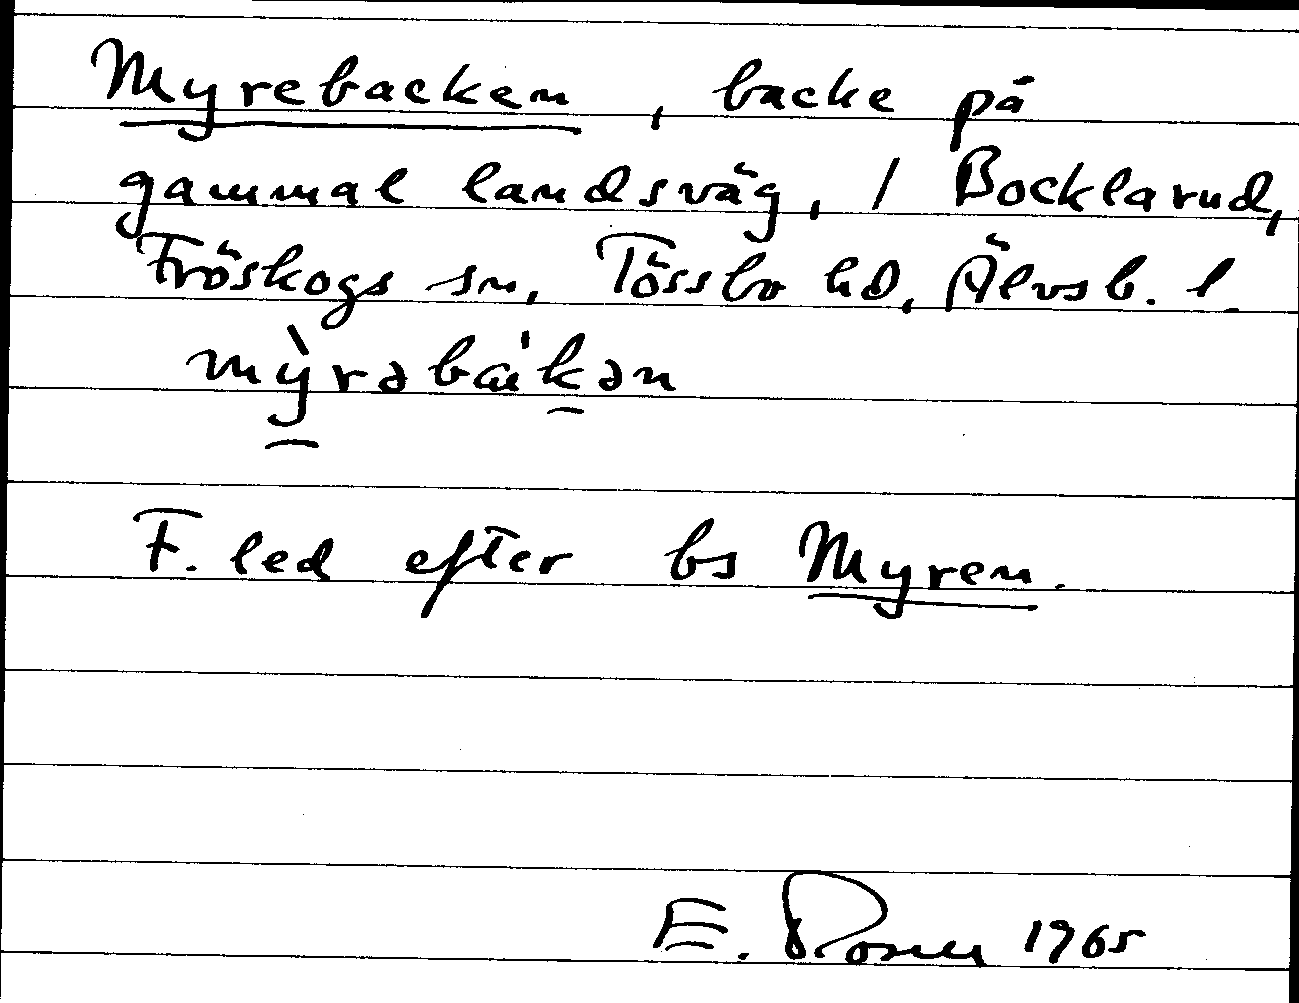 Myrebacken, backe på
gammal landsväg, / Bocklarud,
Fröskogs sn, Tössbo hd, Älvsb. l.
mỳrəbàkən
F. led efter bs Myren.
E. Rosell 1965